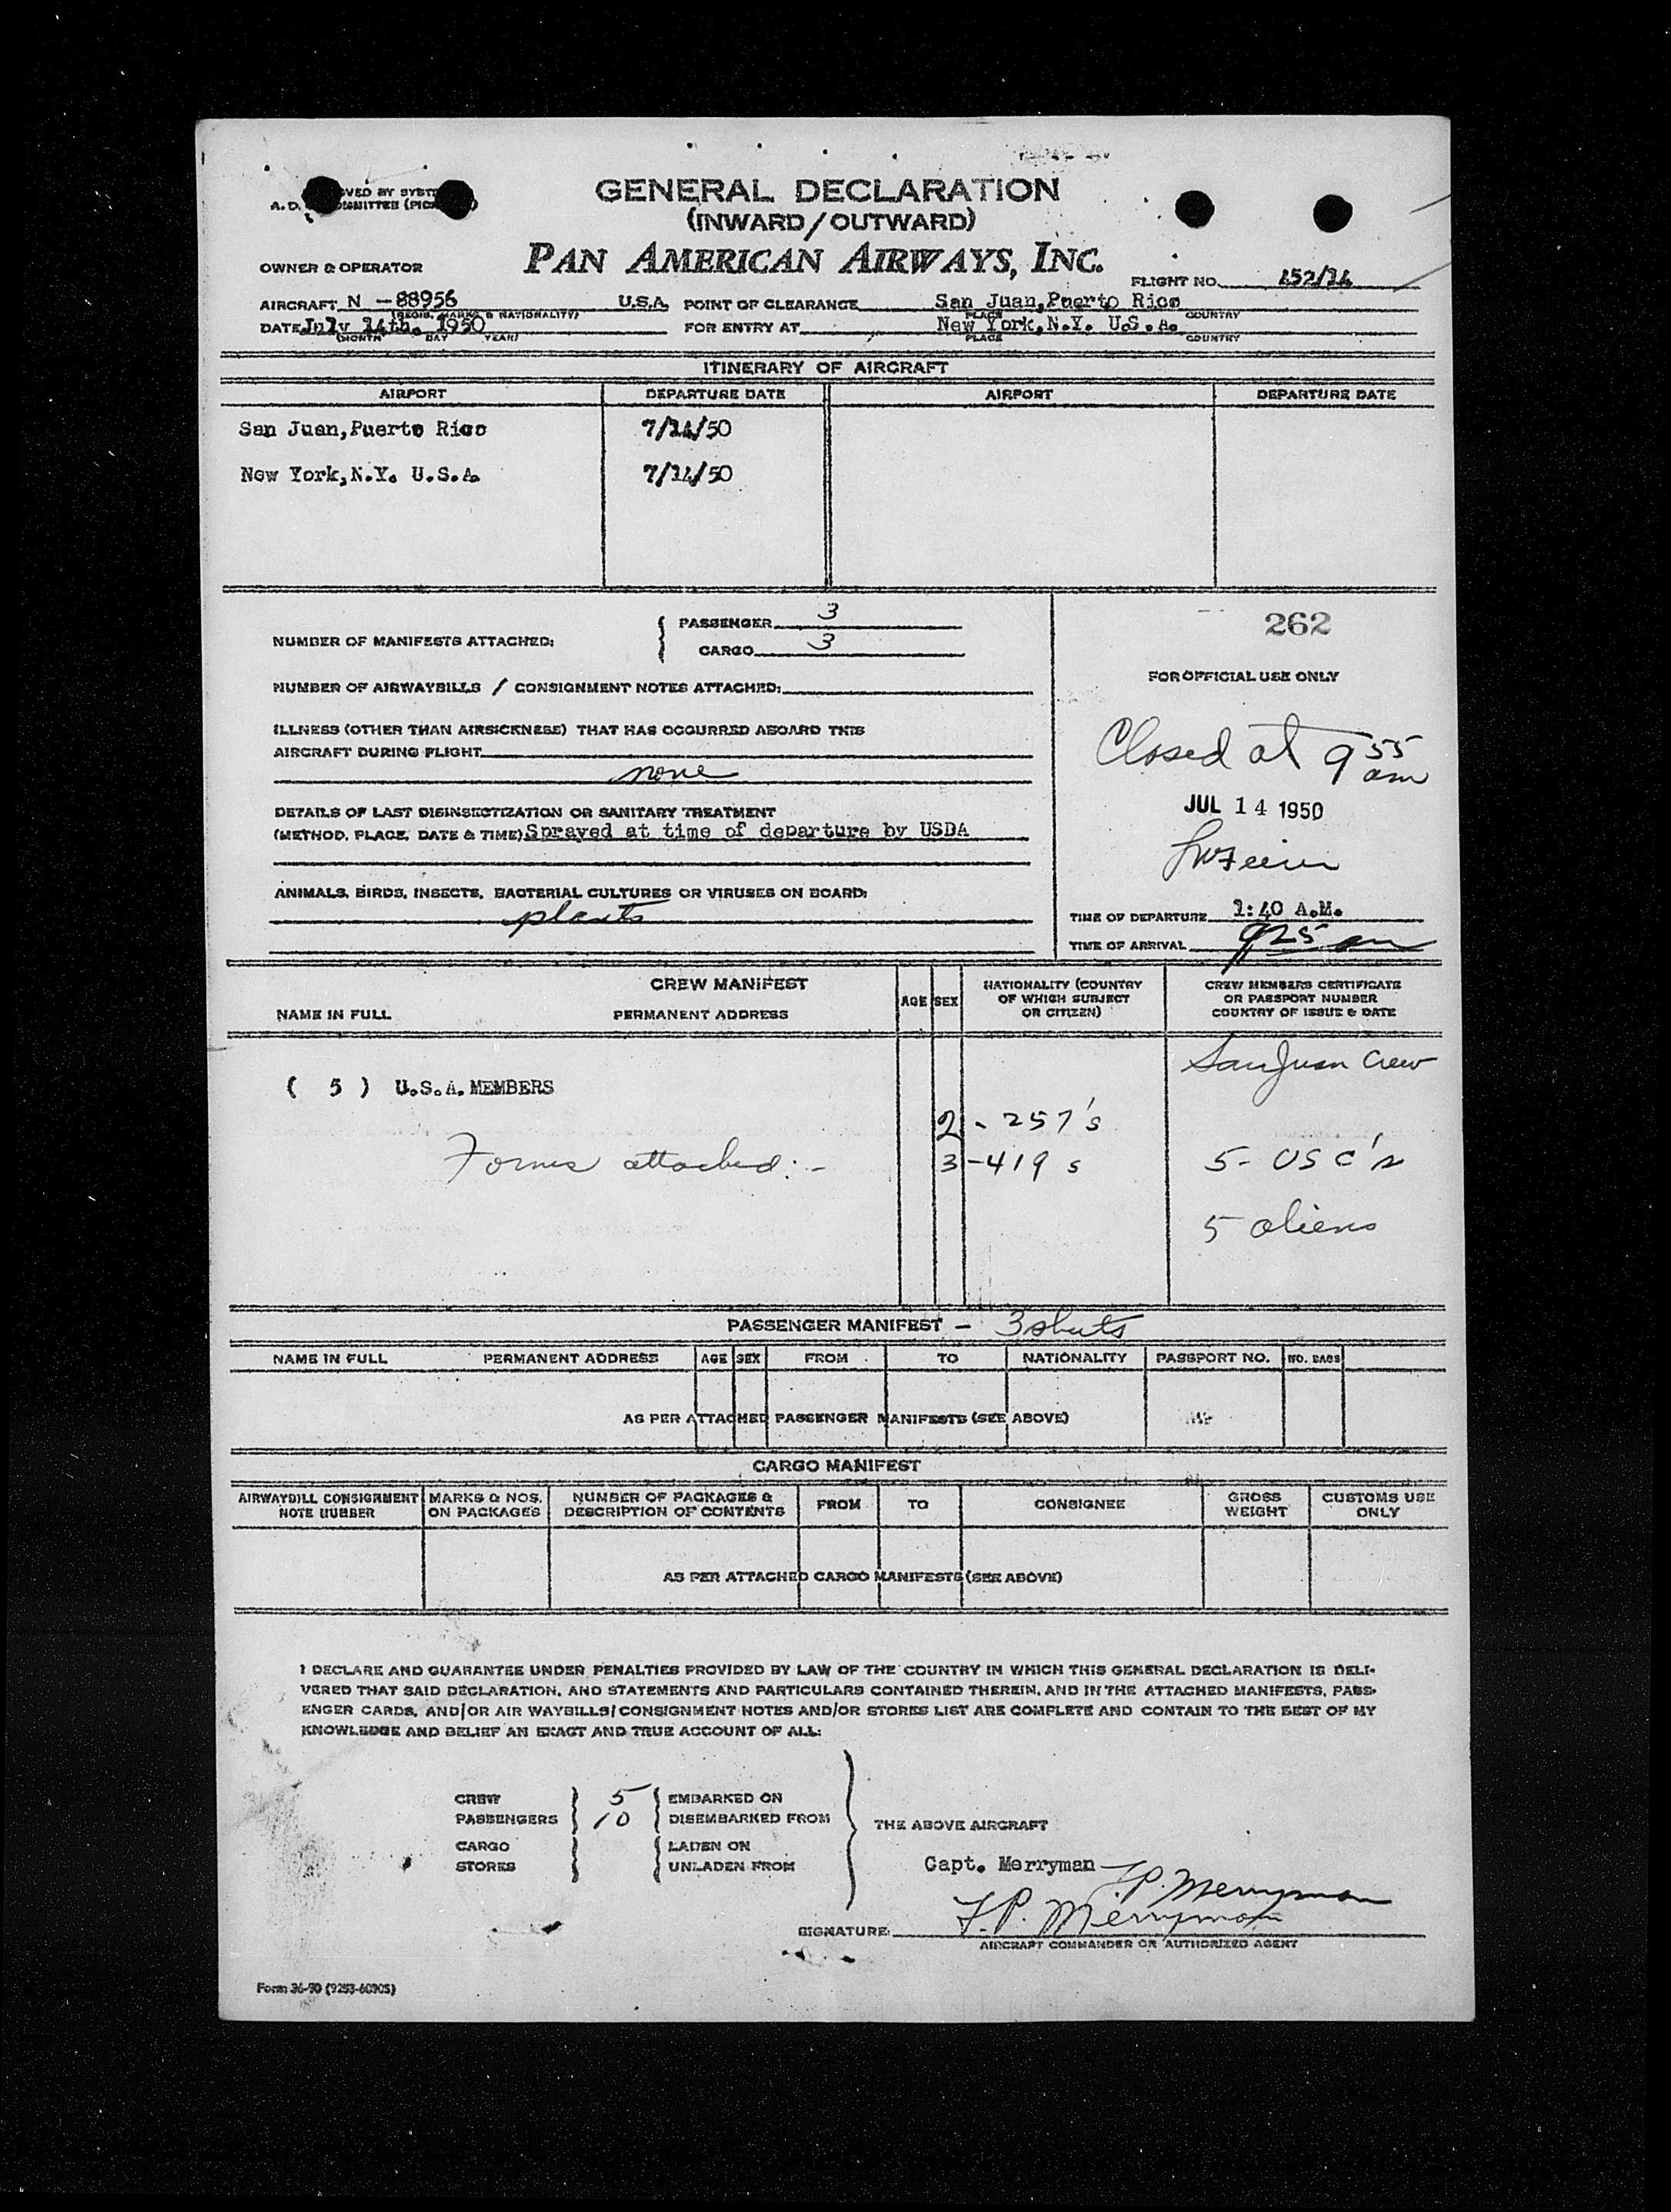 GENERAL DECLARATION
(INWARD/OUTWARD)
PAN AMERICAN AIRWAYS, INC.
OWNER & OPERATOR
FLIGHT NO. 452/14
AIRCRAFT N -88956 U.S.A. POINT OF CLEARANCE San Juan,Puerto Rico
(REGIS. MARKS & NATIONALITY) PLACE COUNTRY
DATE July 14th. 1950 FOR ENTRY AT New York,N.Y. U.S.A.
(MONTH DAY YEAR) PLACE COUNTRY
ITINERARY OF AIRCRAFT
AIRPORT DEPARTURE DATE AIRPORT DEPARTURE DATE
San Juan,Puerto Rico 7/14/50
New York,N.Y. U.S.A. 7/14/50
NUMBER OF MANIFESTS ATTACHED:
PASSENGER 3
CARGO 3
NUMBER OF AIRWAYBILLS / CONSIGNMENT NOTES ATTACHED:
ILLNESS (OTHER THAN AIRSICKNESS) THAT HAS OCCURRED ABOARD THIS
AIRCRAFT DURING FLIGHT
none
DETAILS OF LAST DISINSECTIZATION OR SANITARY TREATMENT
(METHOD, PLACE, DATE & TIME) Sprayed at time of departure by USDA
ANIMALS, BIRDS, INSECTS, BACTERIAL CULTURES OR VIRUSES ON BOARD:
plants
262
FOR OFFICIAL USE ONLY
Closed at 9 55 am
JUL 14 1950
TIME OF DEPARTURE 1:40 A.M.
TIME OF ARRIVAL 925 am
CREW MANIFEST
NAME IN FULL PERMANENT ADDRESS AGE SEX NATIONALITY (COUNTRY OF WHICH SUBJECT OR CITIZEN) CREW MEMBERS CERTIFICATE OR PASSPORT NUMBER COUNTRY OF ISSUE & DATE
San Juan Crew
( 5 ) U.S.A. MEMBERS
2 - 257's
Forms attached:- 3-419s 5- USC's
5 aliens
PASSENGER MANIFEST - 3 sheets
NAME IN FULL PERMANENT ADDRESS AGE SEX FROM TO NATIONALITY PASSPORT NO. NO. BAGS
AS PER ATTACHED PASSENGER MANIFESTS (SEE ABOVE)
CARGO MANIFEST
AIRWAYBILL CONSIGNMENT NOTE NUMBER MARKS & NOS. ON PACKAGES NUMBER OF PACKAGES & DESCRIPTION OF CONTENTS FROM TO CONSIGNEE GROSS WEIGHT CUSTOMS USE ONLY
AS PER ATTACHED CARGO MANIFESTS (SEE ABOVE)
I DECLARE AND GUARANTEE UNDER PENALTIES PROVIDED BY LAW OF THE COUNTRY IN WHICH THIS GENERAL DECLARATION IS DELI-
VERED THAT SAID DECLARATION, AND STATEMENTS AND PARTICULARS CONTAINED THEREIN, AND IN THE ATTACHED MANIFESTS, PASS-
ENGER CARDS, AND/OR AIR WAYBILLS/CONSIGNMENT NOTES AND/OR STORES LIST ARE COMPLETE AND CONTAIN TO THE BEST OF MY
KNOWLEDGE AND BELIEF AN EXACT AND TRUE ACCOUNT OF ALL:
CREW 5 EMBARKED ON
PASSENGERS 10 DISEMBARKED FROM
THE ABOVE AIRCRAFT
CARGO LADEN ON
STORES UNLADEN FROM
Capt. Merryman F.P. Merryman
SIGNATURE: F.P. Merryman
AIRCRAFT COMMANDER OR AUTHORIZED AGENT
Form 36-90 (9253-6090S)